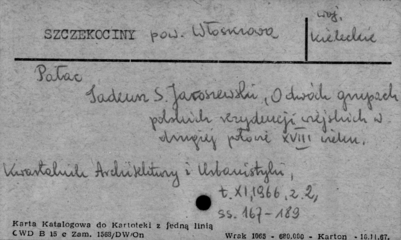 woj.
SZCZEKOCINY pow. Włoszczowa kieleckie
Pałac
Tadeusz S. Jaroszewski, O dwóch grupach
polskich rezydencji wiejskich w
drugiej połowie XVIII wieku.
Kwartalnik Architektury i Urbanistyki,
t. XI, 1966, z. 2,
ss. 167-189
Karta Katalogowa do Kartoteki z jedną linią
CWD B 15 e Zam. 1568/DW/On Wrak 1968 - 680.000 - Karton - 16.11.67.